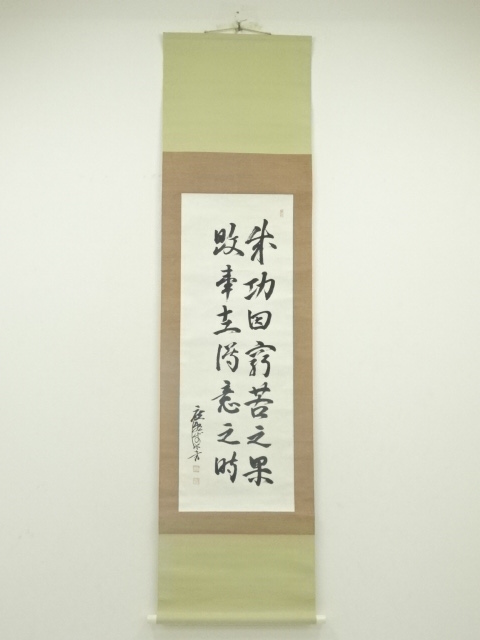 成功因窮苦之果
敗事在得意之時